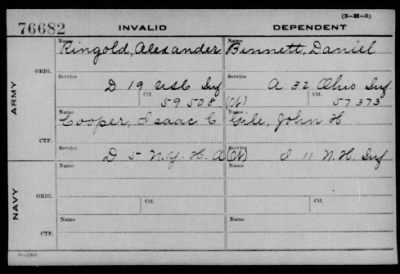 (3-H-5)
76682 INVALID DEPENDENT
Name Name
Ringold, Alexander Bennett, Daniel
ORIG.
Service Service
D 19 USC Inf A 32 Ohio Inf
Ctf. Ctf.
59508 57373
ARMY
Name Name
Cooper, Isaac C Gile, John H
CTF.
Service Service
D 5 N.Y. H. A I 11 N.H. Inf
Name Name
ORIG.
Service Ctf. Service Ctf.
NAVY
Name Name
CTF.
Service Service